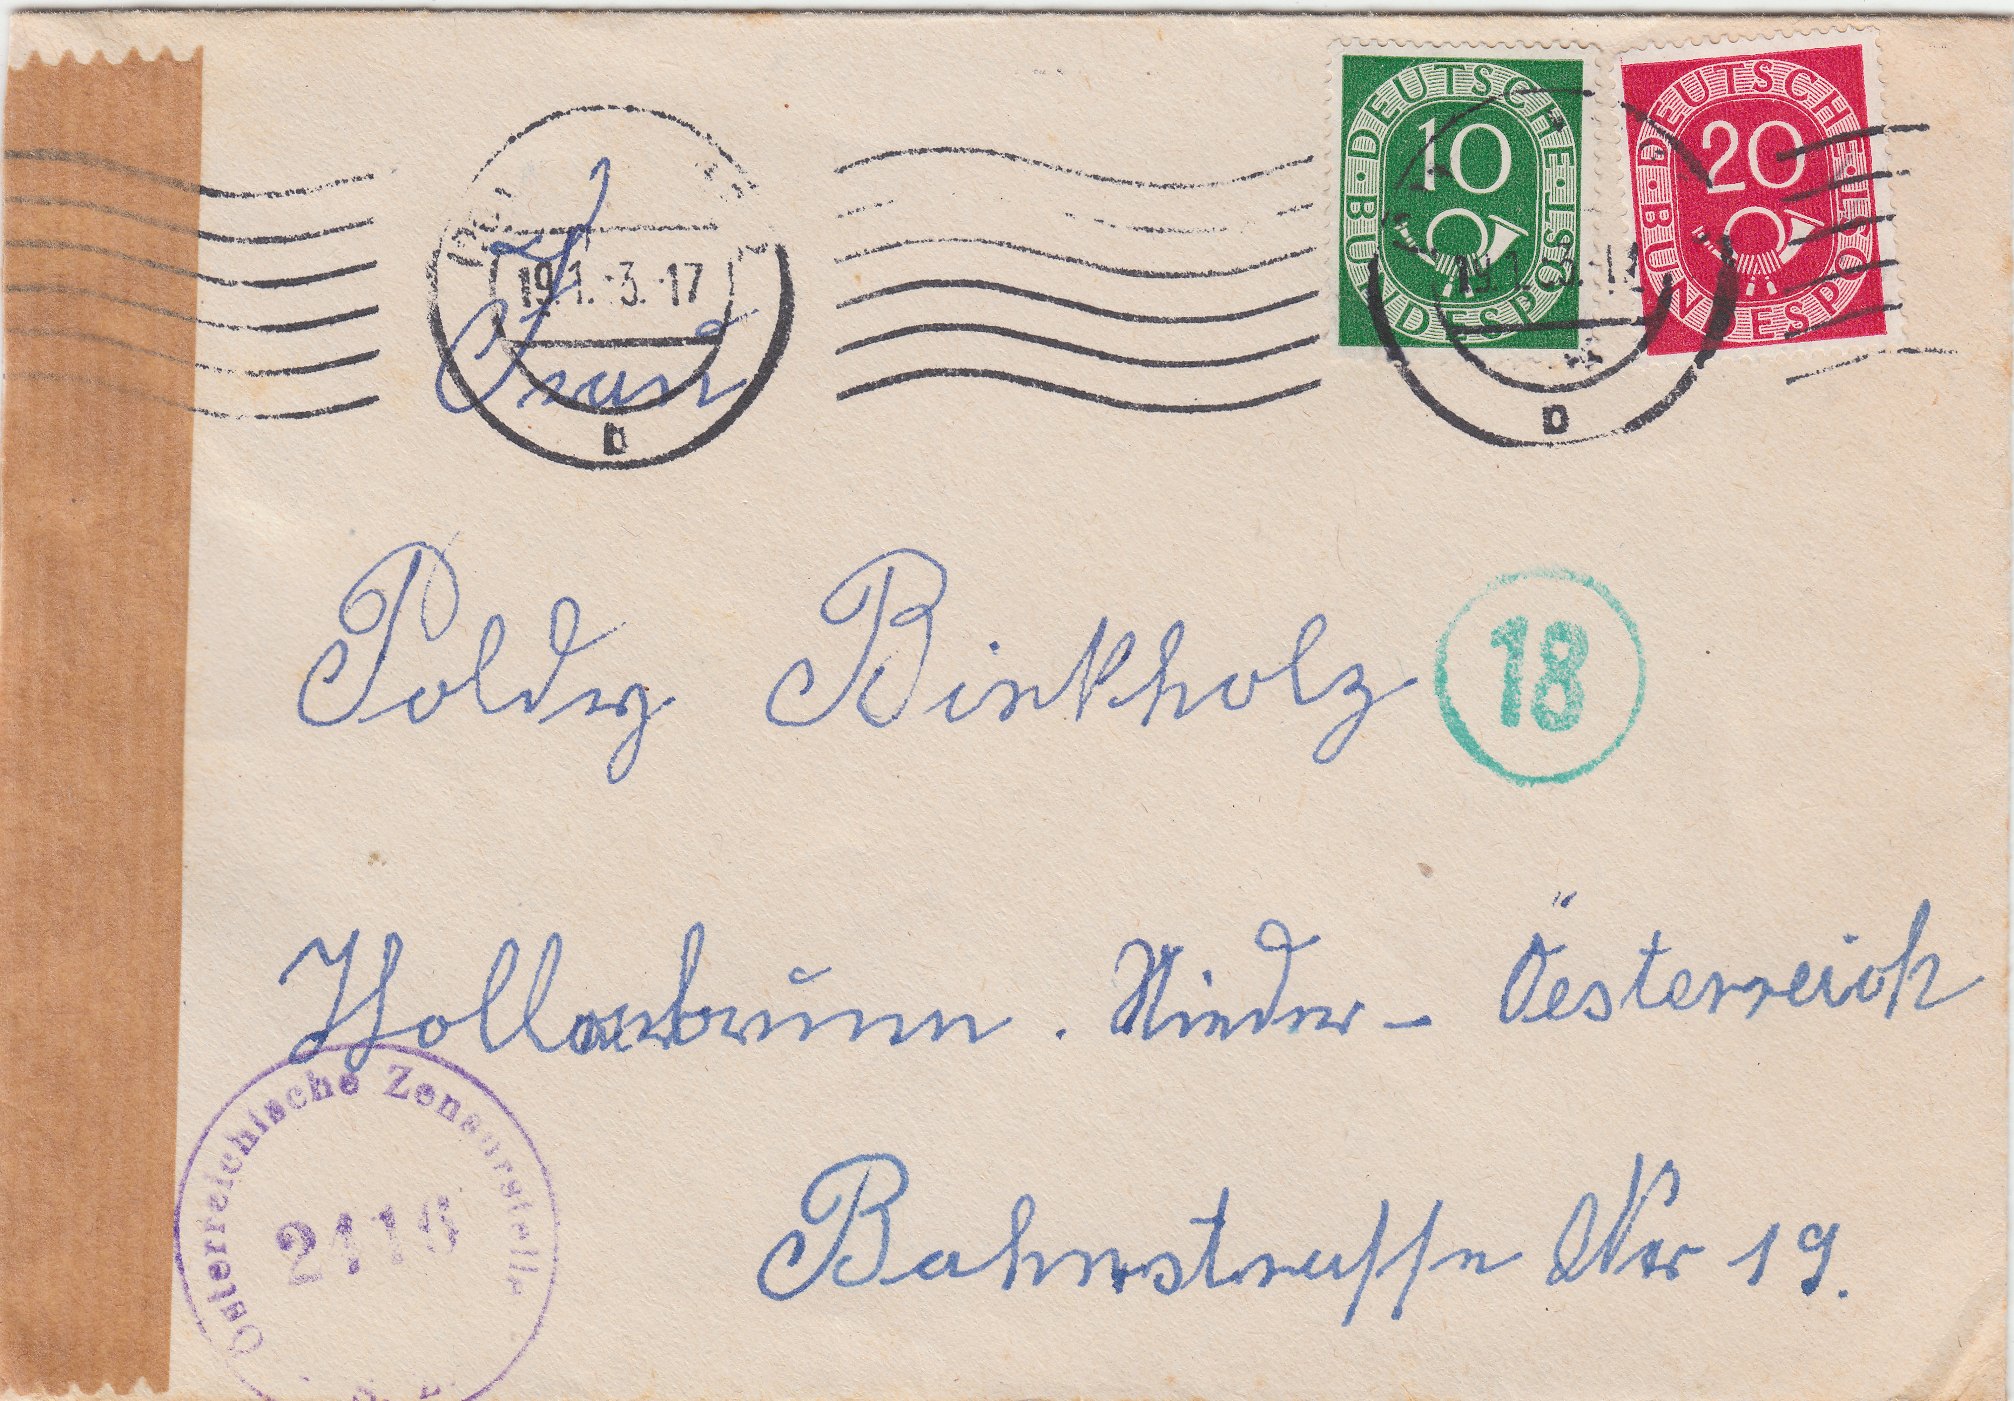 DEUTSCHE BUNDESPOST 10
DEUTSCHE BUNDESPOST 20
19.1. 3.-17
b
19.1. 3.
b
Frau
Poldy Birkholz
18
Hollabrunn. Nieder- Österreich
Bahnstrasse Nr 19.
Österreichische Zensurstelle